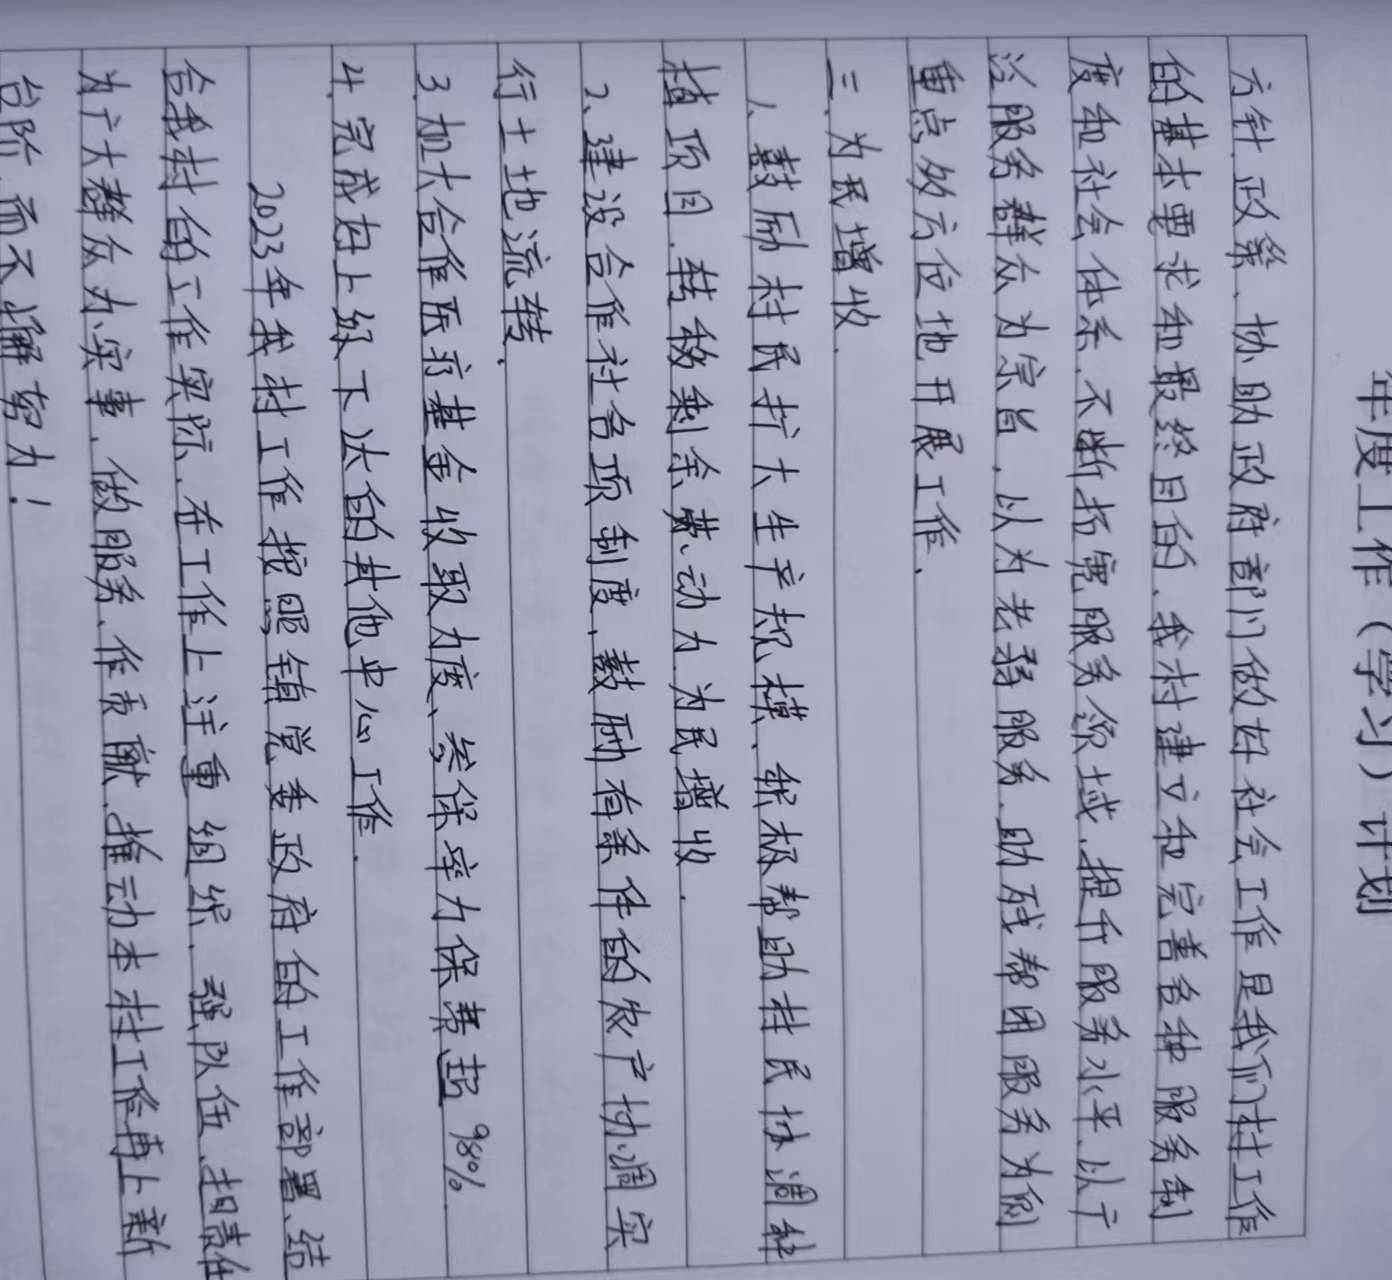 年度工作（学习）计划
方针、政策、协助政府部门做好社会工作是我们村工作
的基本要求和最终目的、我村建立和完善各种服务制
度和社会体系、不断拓宽服务领域、提升服务水平、以广
泛服务群众为宗旨、以为老弱服务、助残帮困服务为侧
重点多方位地开展工作、
三、为民增收.
1、鼓励村民扩大生产规模、积极帮助村民协调种
植项目、转移剩余劳动力为民增收.
2、建设合作社各项制度、鼓励有条件的农户协调实
行土地流转.
3、加大合作医疗基金收取力度、参保率力保费超98%
4、完成好上级下达的其他中心工作.
2023年我村工作按照镇党委政府的工作部署、结
合我村的工作实际、在工作上注重组织、强队伍、担责任
为广大群众办实事、做服务、作贡献、推动本村工作再上新
台阶而不懈努力！